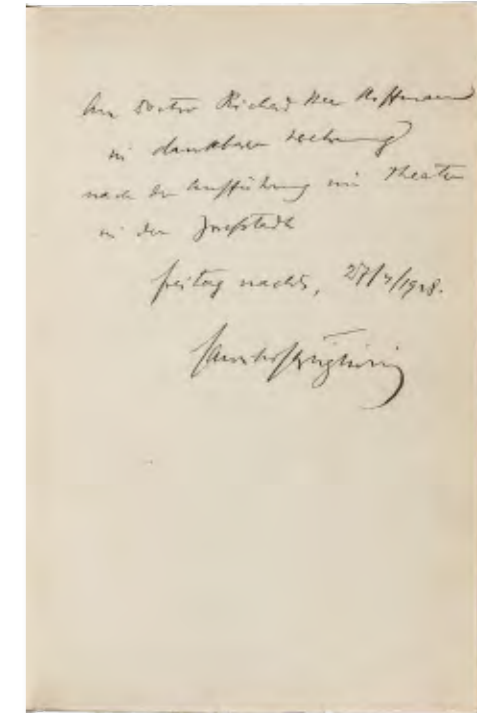 An Doctor Richard Beer Hoffmann
in dankbarer
nach der Aufführung im Theater
in der Josefstadt
freitag nachts, 27/4/1928.